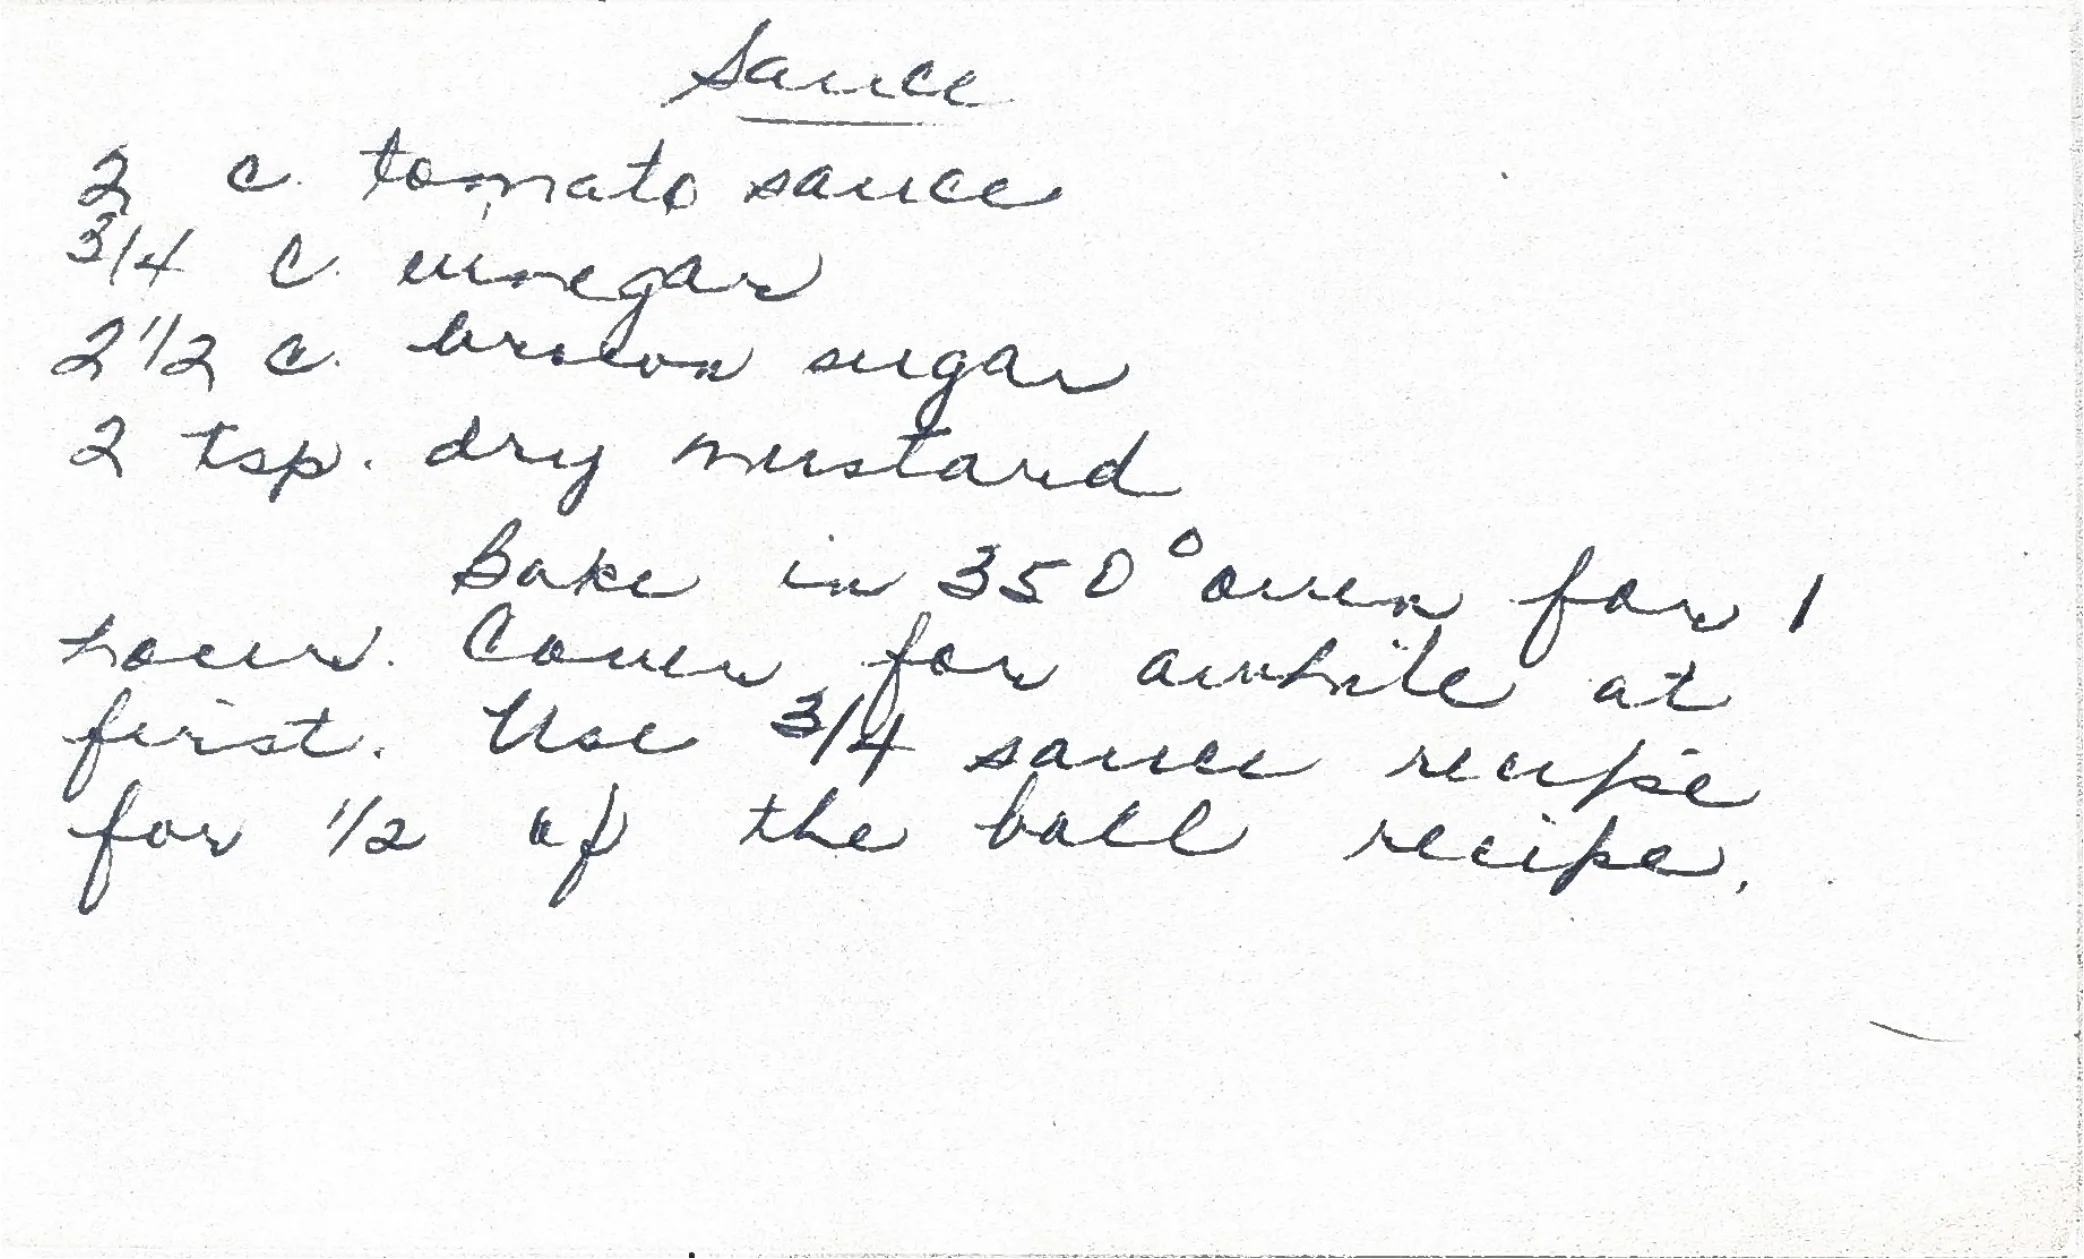 Sauce
2 c. tomato sauce
3/4 c. vinegar
2 1/2 c. brown sugar
2 tsp. dry mustard
Bake in 350° oven for 1
hour. Cover for awhile at
first. Use 3/4 sauce recipe
for 1/2 of the ball recipe.